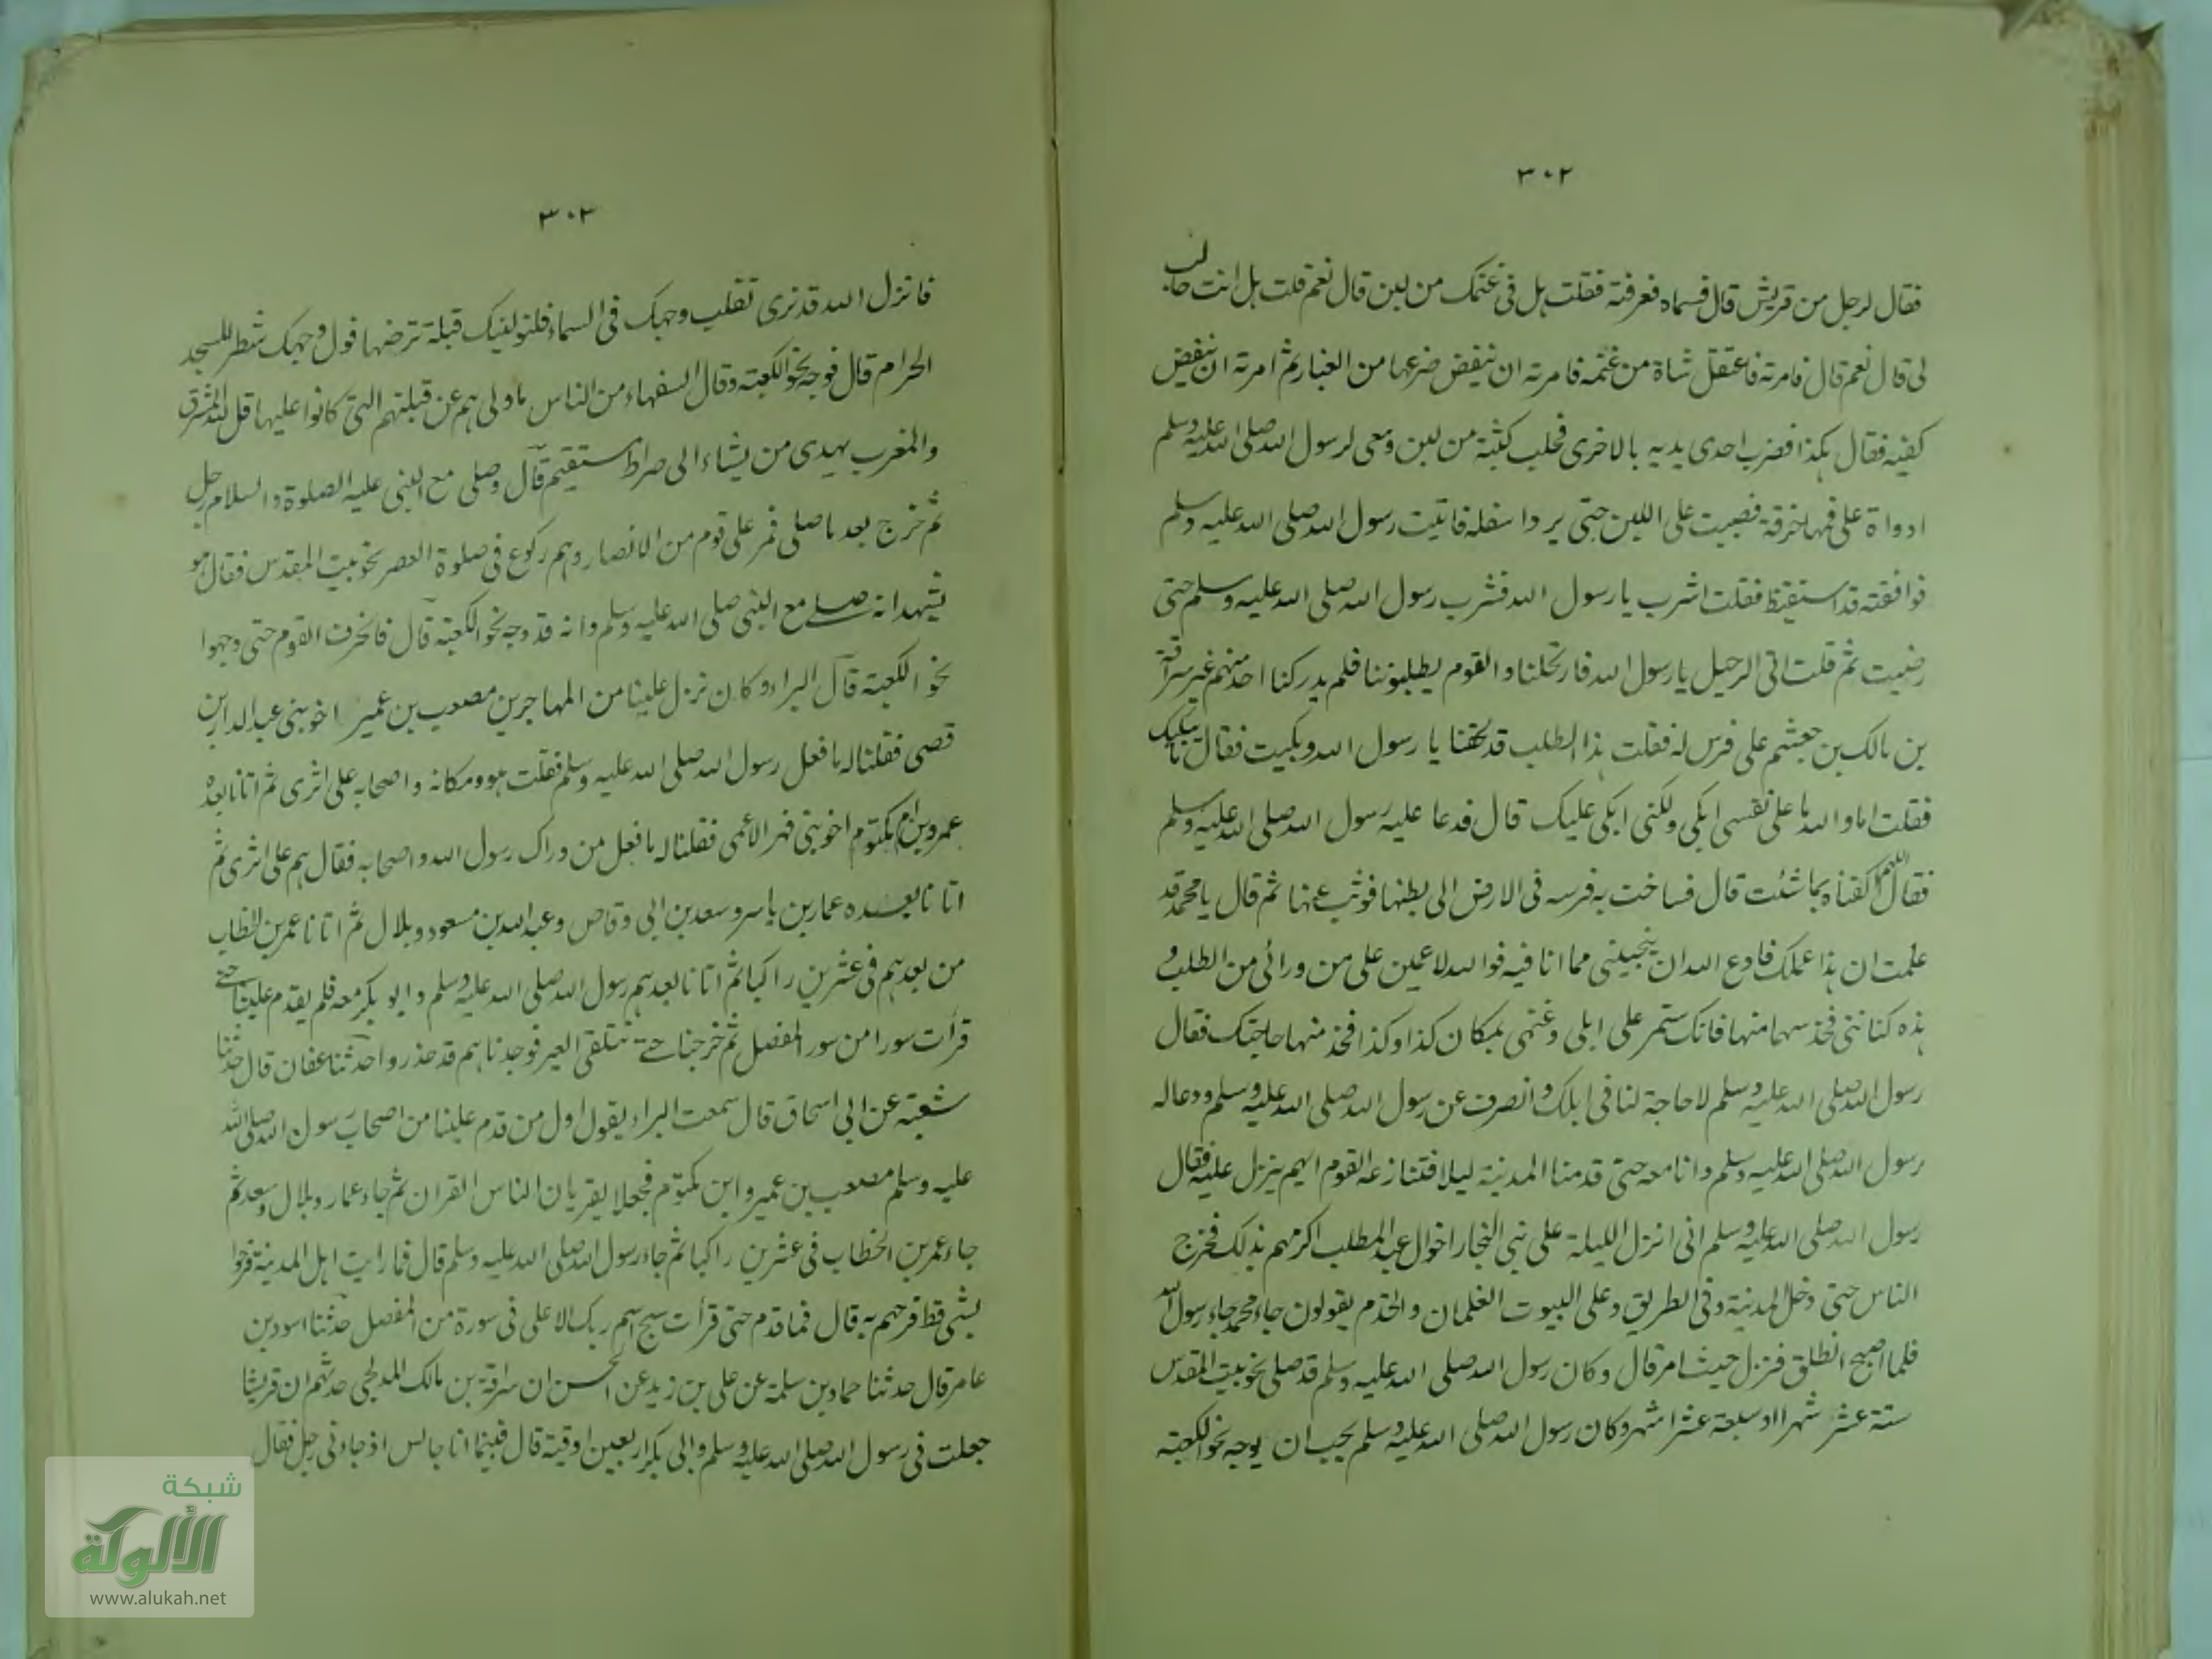 ٣٠٢
فقال لرجل من قريش قال فسماه فعرفته فقلت هل في غنمك من لبن قال نعم قلت هل انت حالب
لى قال نعم قال فامرته فاعتقل شاة من غنمه فامرته ان ينفض ضرعها من الغبار ثم امرته ان ينفض
كفيه فقال هكذا فضرب احدى يديه بالاخرى فحلب كثبة من لبن ومعى لرسول الله صلى الله عليه وسلم
اداوة على فمها خرقة فصببت على اللبن حتى برد اسفله فاتيت رسول الله صلى الله عليه وسلم
فوافقته قد استيقظ فقلت اشرب يا رسول الله فشرب رسول الله صلى الله عليه وسلم حتى
رضيت ثم قلت انى الرحيل يا رسول الله فارتحلنا والقوم يطلبوننا فلم يدركنا احد منهم غير سراقة
بن مالك بن جعشم على فرس له فقلت هذا الطلب قد لحقنا يا رسول الله وبكيت فقال ما يبكيك
فقلت اما والله ما على نفسى ابكى ولكنى ابكى عليك قال فدعا عليه رسول الله صلى الله عليه وسلم
فقال اللهم اكفناه بما شئت قال فساخت به فرسه فى الارض الى بطنها فوثب عنها ثم قال يا محمد قد
علمت ان هذا عملك فادع الله ان ينجينى مما انا فيه فوالله لاعمين على من ورائى من الطلب و
هذه كنانتى فخذ سهما منها فانك ستمر على ابلى وغنمى بمكان كذا وكذا فخذ منها حاجتك فقال
رسول الله صلى الله عليه وسلم لا حاجة لنا فى ابلك وانصرف عن رسول الله صلى الله عليه وسلم ودعا له
رسول الله صلى الله عليه وسلم وانا معه حتى قدمنا المدينة ليلا فتنازعه القوم ايهم ينزل عليه فقال
رسول الله صلى الله عليه وسلم انى انزل الليلة على بنى النجار اخوال عبد المطلب اكرمهم بذلك فخرج
الناس حتى دخل المدينة وفى الطريق وعلى البيوت الغلمان والخدم يقولون جاء محمد جاء رسول الله
فلما اصبح انطلق فنزل حيث امر قال وكان رسول الله صلى الله عليه وسلم قد صلى نحو بيت المقدس
ستة عشر شهرا او سبعة عشر اشهر وكان رسول الله صلى الله عليه وسلم يحب ان يوجه نحو الكعبة
٣٠٣
فانزل الله قد نرى تقلب وجهك فى السماء فلنولينك قبلة ترضها فول وجهك شطر المسجد
الحرام قال فوجه نحو الكعبة وقال السفهاء من الناس ما ولى هم عن قبلتهم التى كانوا عليها قل لله المشرق
والمغرب يهدى من يشاء الى صراط مستقيم قال وصلى مع النبى عليه الصلوة والسلام رجل
ثم خرج بعد ما صلى فمر على قوم من الانصار وهم ركوع فى صلوة العصر نحو بيت المقدس فقال هو
يشهد انه صلى مع النبى صلى الله عليه وسلم وانه قد وجه نحو الكعبة قال فانحرف القوم حتى وجهوا
نحو الكعبة قال البراء وكان نزل علينا من المهاجرين مصعب بن عمير اخو بنى عبد الدار بن
قصى فقلنا له ما فعل رسول الله صلى الله عليه وسلم فقلت هو ومكانه واصحابه على اثرى ثم اتانا بعده
عمرو بن ام مكتوم اخو بنى فهر الاعمى فقلنا له ما فعل من وراك رسول الله واصحابه فقال هم على اثرى ثم
اتانا بعده عمار بن ياسر وسعد بن ابى وقاص وعبد الله بن مسعود وبلال ثم اتانا عمر بن الخطاب
من بعدهم فى عشرين راكبا ثم اتانا بعدهم رسول الله صلى الله عليه وسلم وابو بكر معه فلم يقدم علينا حتى
قرأت سورا من سور المفصل ثم خرجنا حتى نتلقى العير فوجدناهم قد حذروا حدثنا عفان قال حدثنا
شعبة عن ابى اسحاق قال سمعت البراء يقول اول من قدم علينا من اصحاب رسول الله صلى الله
عليه وسلم مصعب بن عمير وابن مكتوم فجعلا يقريان الناس القران ثم جاء عمار وبلال وسعد ثم
جاء عمر بن الخطاب فى عشرين راكبا ثم جاء رسول الله صلى الله عليه وسلم قال فما رايت اهل المدينة فرحوا
بشى قط فرحهم به قال فما قدم حتى قرأت سبح اسم ربك الاعلى فى سورة من المفصل حدثنا اسود بن
عامر قال حدثنا حماد بن سلمة عن على بن زيد عن الحسن ان سراقة بن مالك المدلجى حدثهم ان قريشا
جعلت فى رسول الله صلى الله عليه وسلم وابى بكر اربعين اوقية قال فبينما انا جالس اذ جاءنى رجل فقال
شبكة
الألوكة
www.alukah.net